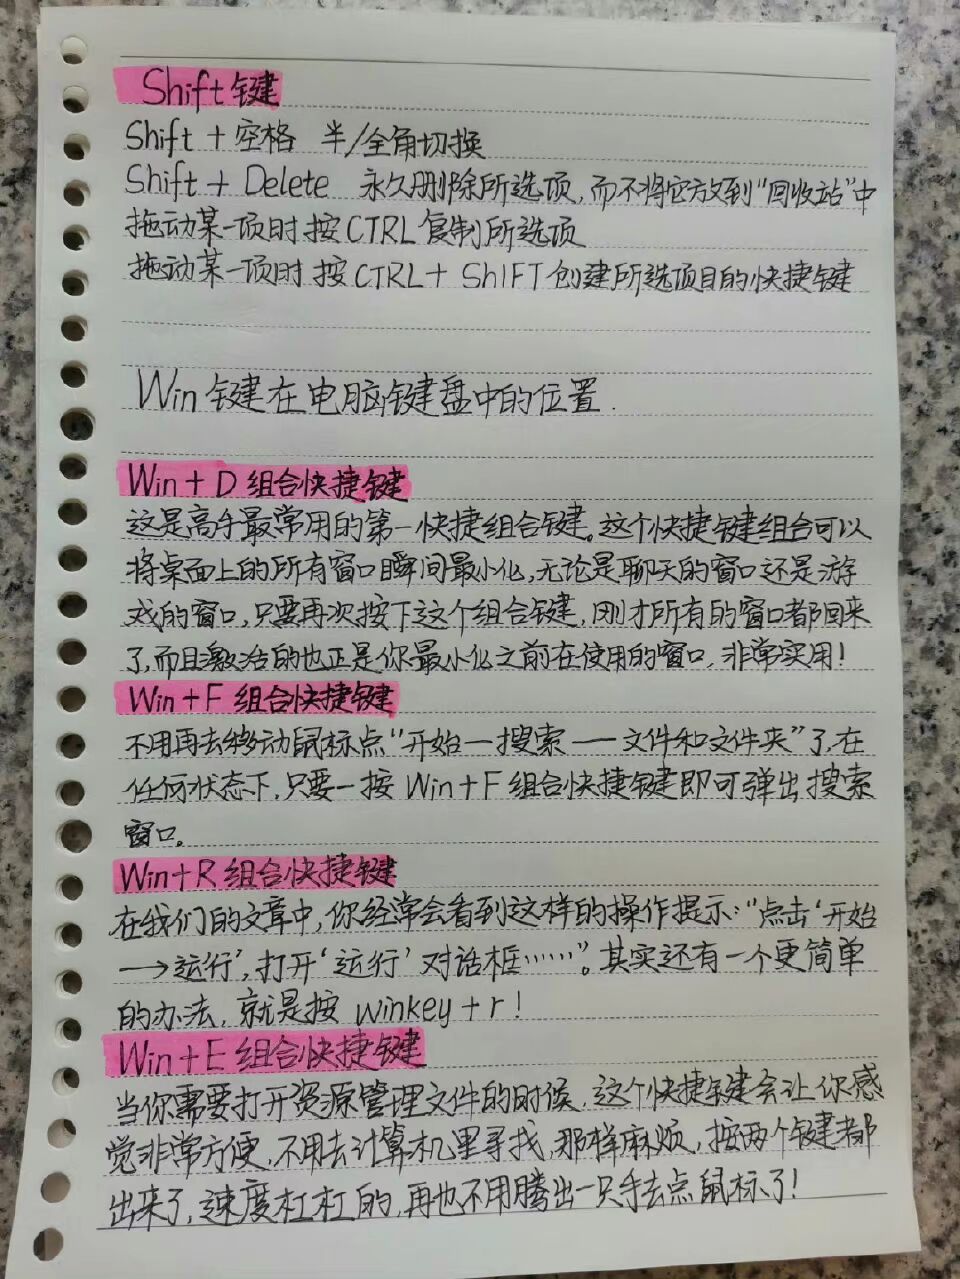 Shift键
Shift + 空格 半/全角切换
Shift + Delete 永久删除所选项,而不将它放到“回收站”中
拖动某一项时按CTRL复制所选项
拖动某一项时按CTRL+ShIFT创建所选项目的快捷键
Win键在电脑键盘中的位置.
Win+D组合快捷键
这是高手最常用的第一快捷组合键。这个快捷键组合可以
将桌面上的所有窗口瞬间最小化,无论是聊天的窗口还是游
戏的窗口,只要再次按下这个组合键,刚才所有的窗口都回来
了,而且激活的也正是你最小化之前在使用的窗口,非常实用!
Win+F组合快捷键
不用再去移动鼠标点“开始一搜索一一文件和文件夹”了,在
任何状态下,只要一按Win+F组合快捷键即可弹出搜索
窗口。
Win+R组合快捷键
在我们的文章中,你经常会看到这样的操作提示:“点击‘开始
—>运行’,打开‘运行’对话框……”。其实还有一个更简单
的办法,就是按 winkey+r!
Win+E组合快捷键
当你需要打开资源管理文件的时候,这个快捷键会让你感
觉非常方便,不用去计算机里寻找,那样麻烦,按两个键都
出来了,速度杠杠的,再也不用腾出一只手去点鼠标了!